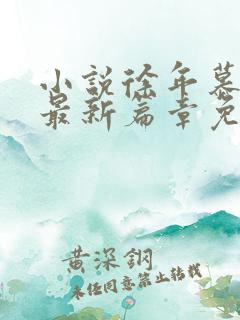 小説徐年慕
最新篇章免
黄深鋼
未经同意禁止转载